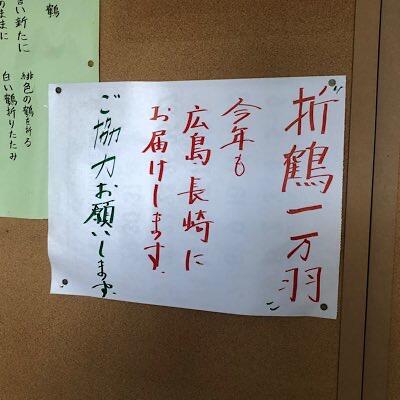 折鶴一万羽
今年も
広島、長崎に
お届けします。
ご協力お願いします。
鶴
い新たに
ままに
緋色の鶴を折る
白い鶴折りたたみ